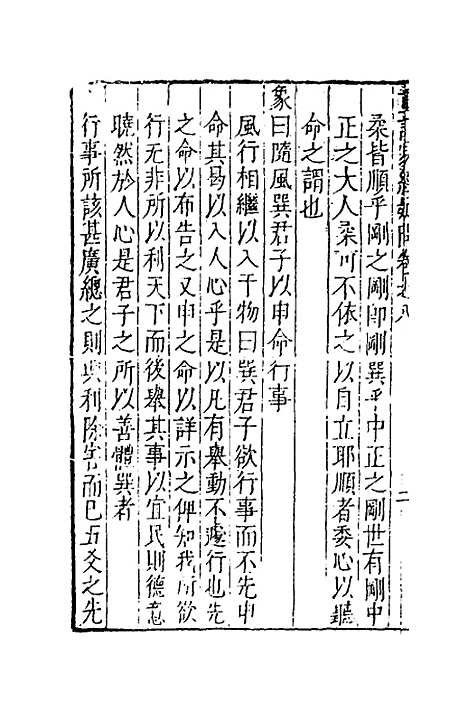 柔皆順乎剛之剛即剛巽乎中正之剛世有剛中
正之大人柔可不依之以自立耶順者委心以聽
命之謂也
象曰隨風巽君子以申命行事
風行相繼以入于物曰巽君子欲行事而不先申
命其曷以入人心乎是以凡有舉動不遽行也先
之命以布告之又申之命以詳示之俾知我所欲
行无非所以利天下而後舉其事以宜民則德意
曉然於人心是君子之所以善體巽者
行事所該甚廣總之則興利除害而已五爻之先